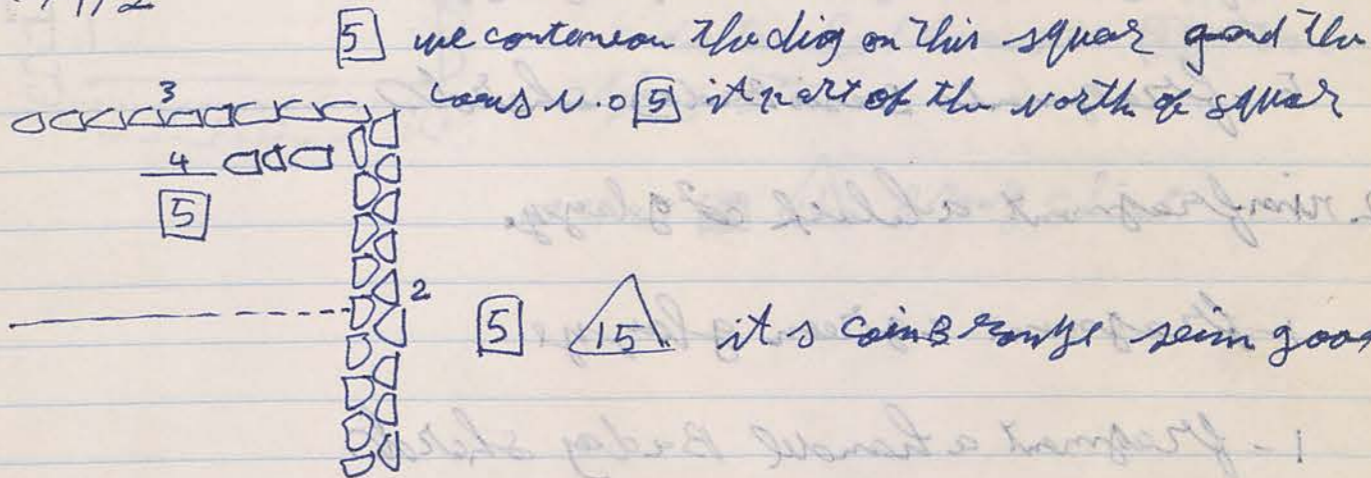 5 we contemeou the dig on this squar and the
locus N.o 5 it part of the North of squar
3
4
5
2
5 15 it s coin Bronze seim good